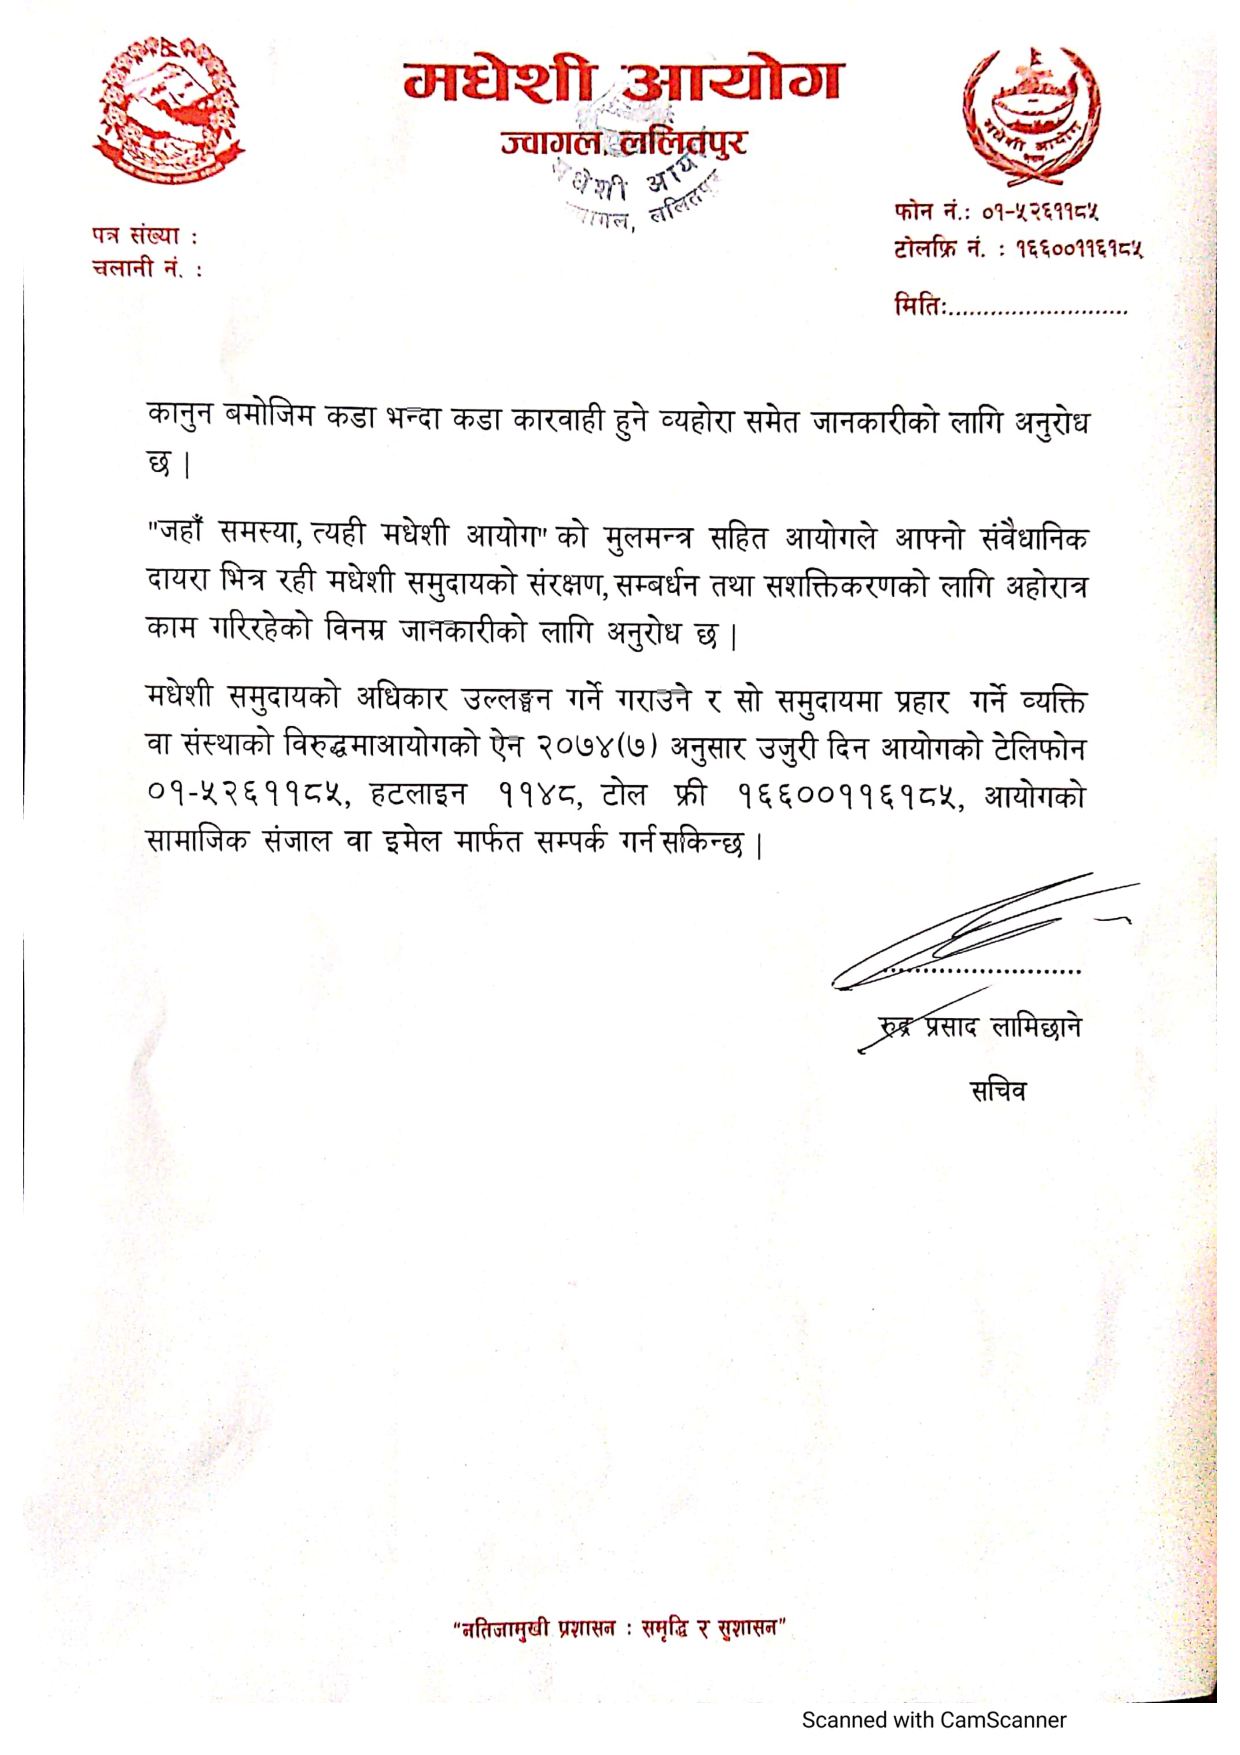 मधेशी आयोग
ज्वागल, ललितपुर
मधेशी आयोग
नेपाल
मधेशी आय
ललितपुर
पत्र संख्या :
चलानी नं. :
फोन नं.: ०१-५२६११८५
टोलफ्रि नं. : १६६००११६१८५
मितिः..........................
कानुन बमोजिम कडा भन्दा कडा कारवाही हुने व्यहोरा समेत जानकारीको लागि अनुरोध
छ |
"जहाँ समस्या, त्यही मधेशी आयोग" को मुलमन्त्र सहित आयोगले आफ्नो संवैधानिक
दायरा भित्र रही मधेशी समुदायको संरक्षण, सम्बर्धन तथा सशक्तिकरणको लागि अहोरात्र
काम गरिरहेको विनम्र जानकारीको लागि अनुरोध छ |
मधेशी समुदायको अधिकार उल्लङ्घन गर्ने गराउने र सो समुदायमा प्रहार गर्ने व्यक्ति
वा संस्थाको विरुद्धमाआयोगको ऐन २०७४(७) अनुसार उजुरी दिन आयोगको टेलिफोन
०१-५२६११८५, हटलाइन ११४८, टोल फ्री १६६००११६१८५, आयोगको
सामाजिक संजाल वा इमेल मार्फत सम्पर्क गर्न सकिन्छ |
........................
रुद्र प्रसाद लामिछाने
सचिव
"नतिजामुखी प्रशासन : समृद्धि र सुशासन"
Scanned with CamScanner